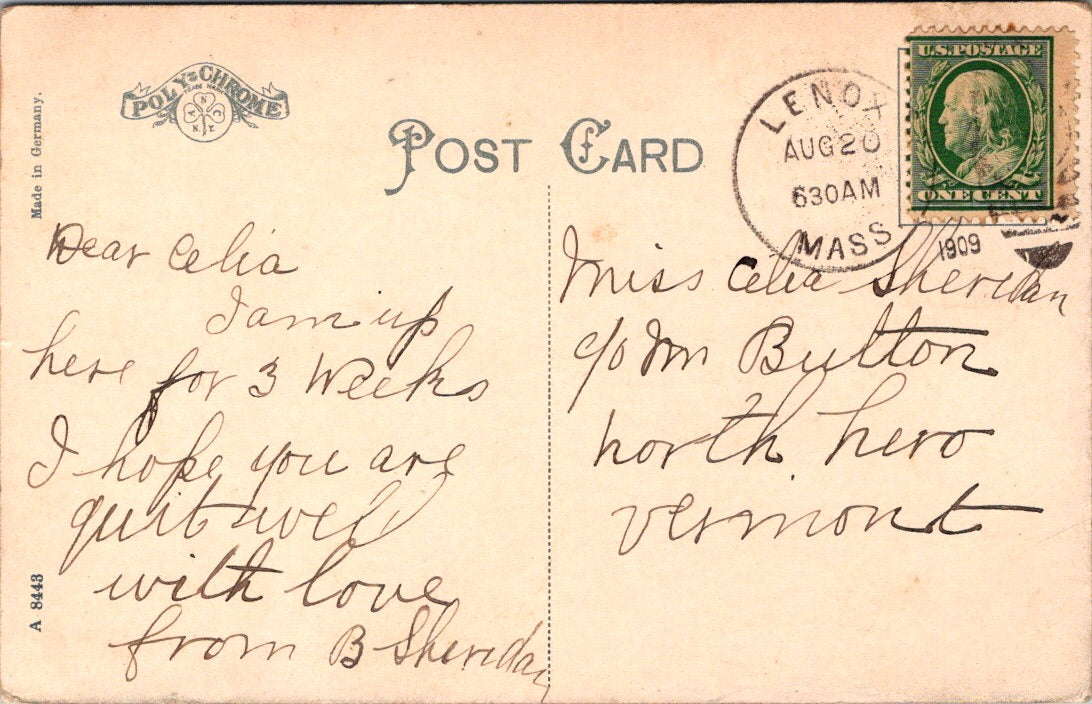 Made in Germany.
POLY-CHROME
TRADE MARK
A N C
N.Y.
POST CARD
LENOX
AUG 20
630AM
MASS
1909
U.S. POSTAGE
ONE CENT
Dear Celia
I am up
here for 3 Weeks
I hope you are
quit well
with love
from B Sheridan
Miss Celia Sheridan
c/o Wm Button
north hero
vermont
A 8443